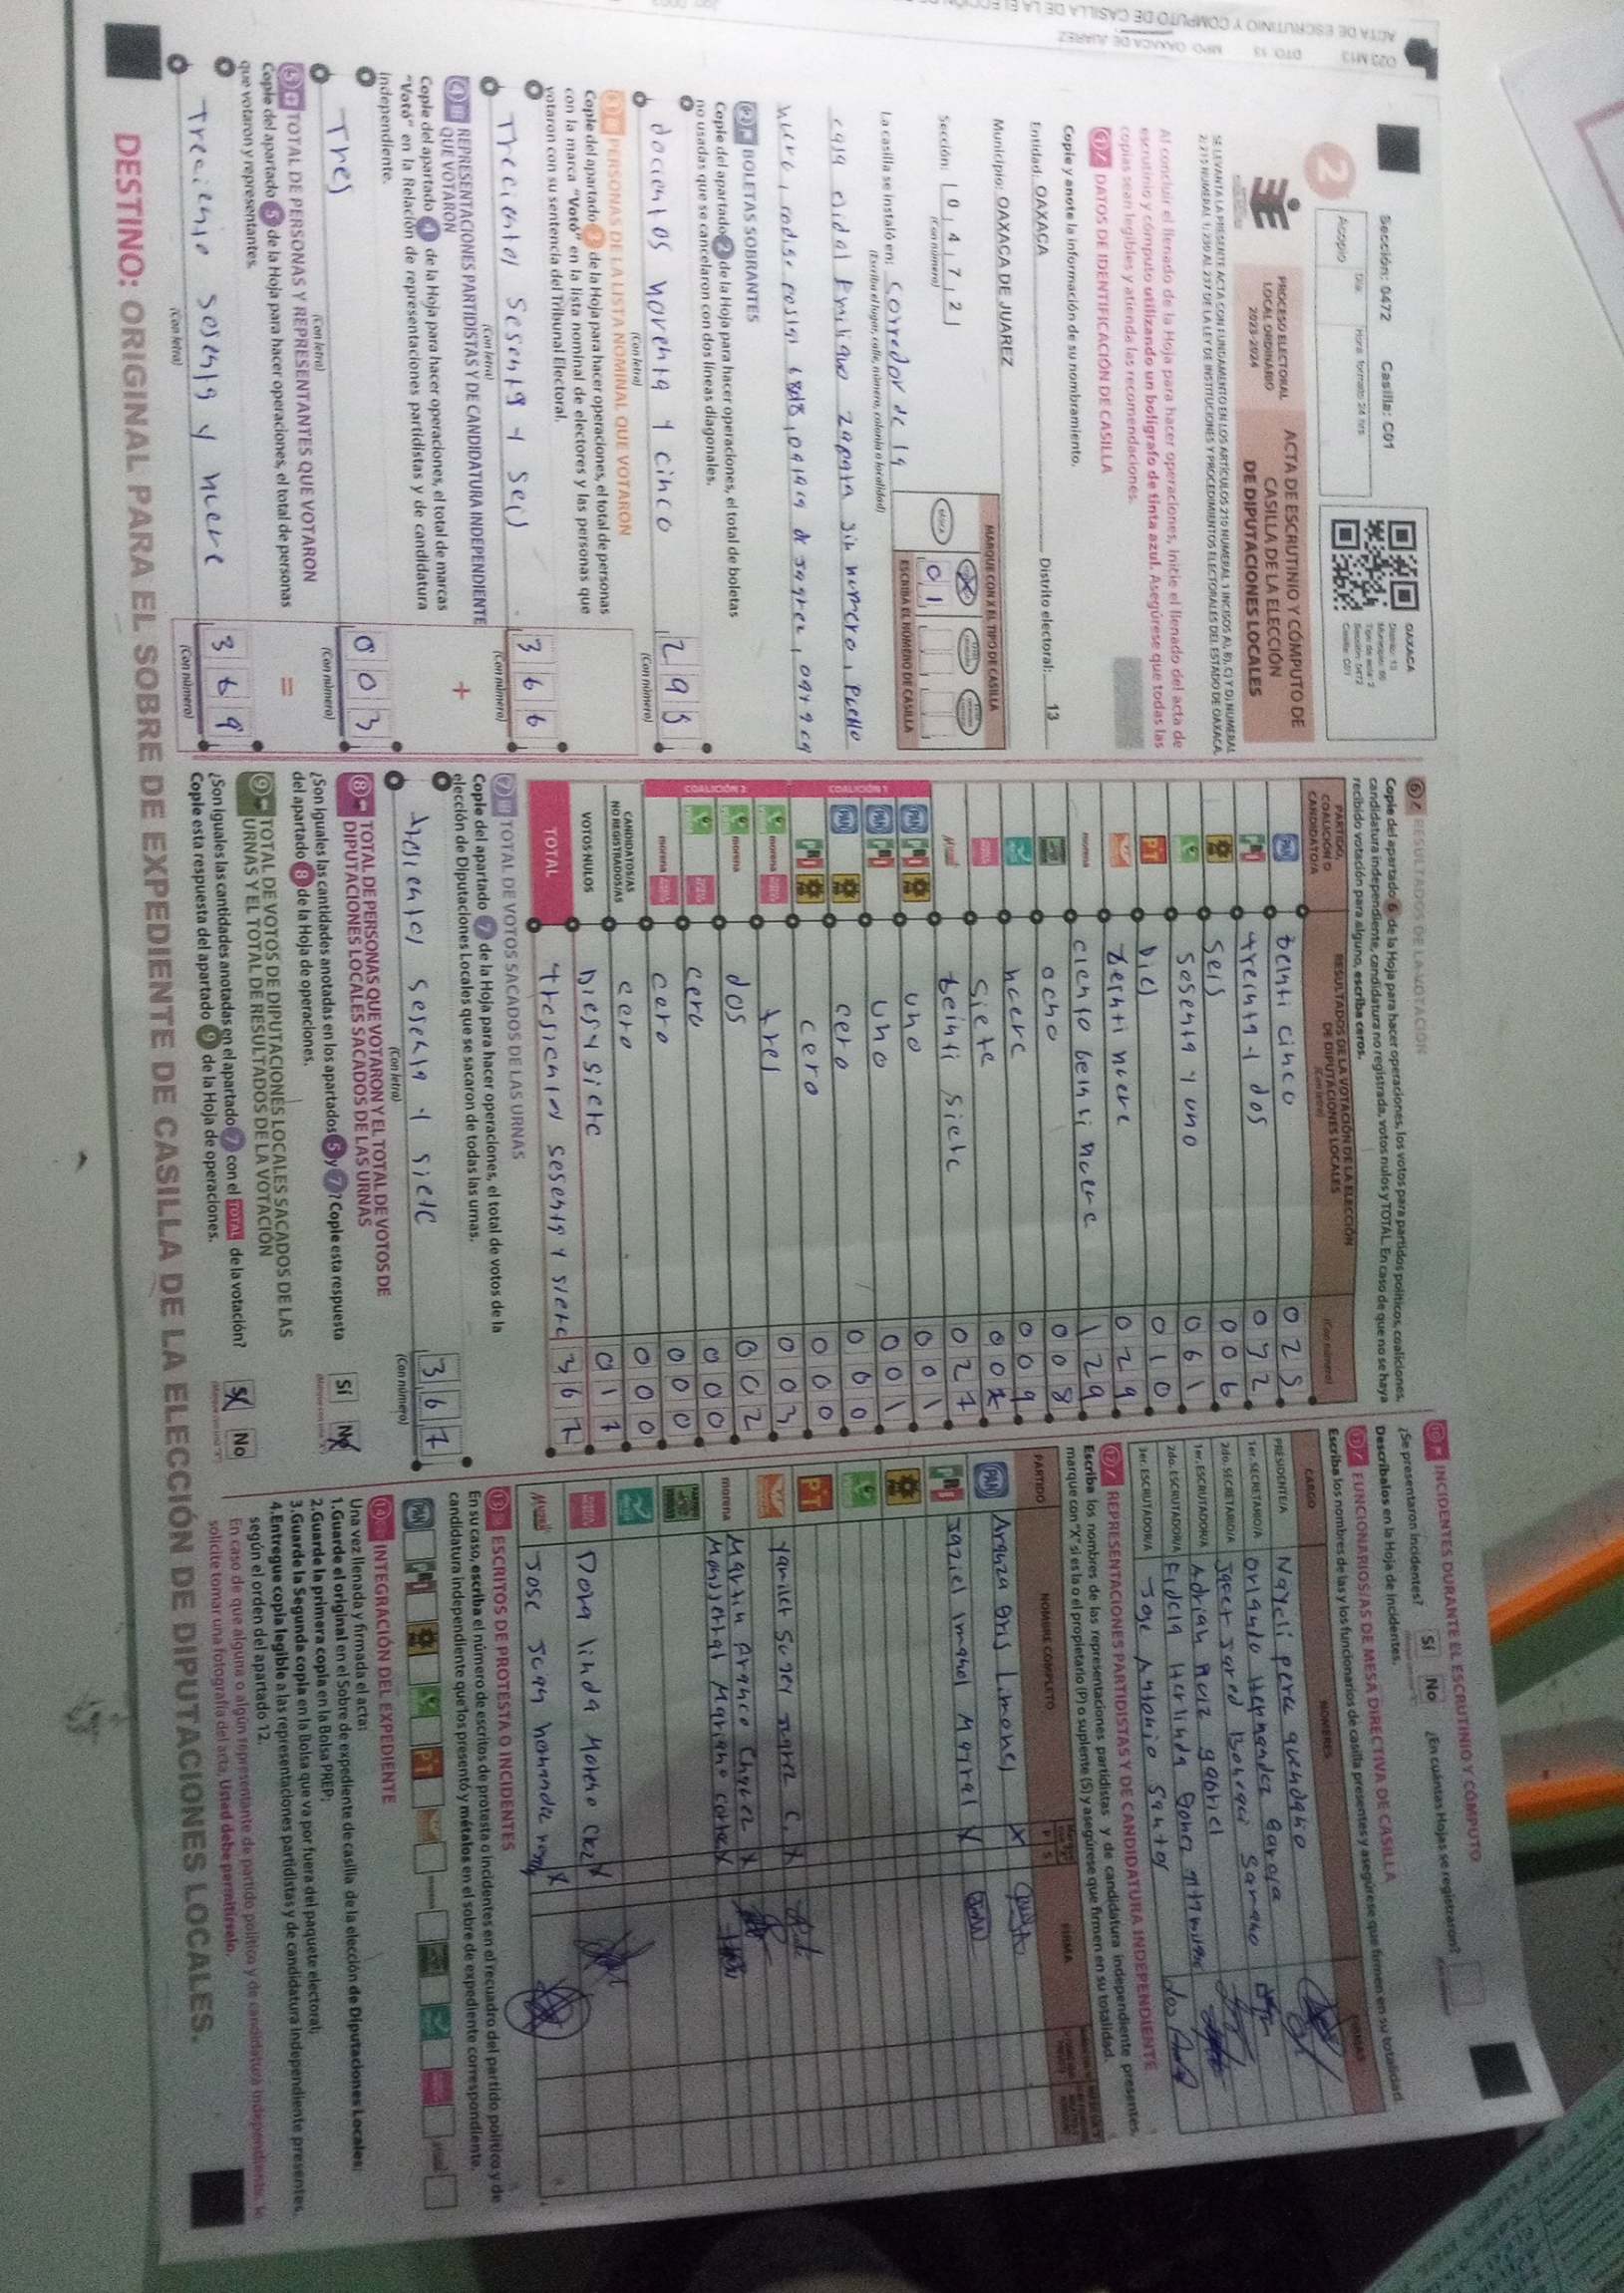 023 M13 DTO. 13 MPO. OAXACA DE JUAREZ
Sección: 0472 Casilla: C01
2
Acopio
Día:
Hora: formato 24 hrs
OAXACA
Distrito: 13
Sección: 0472
Casilla: C01
PROCESO ELECTORAL
LOCAL ORDINARIO
2023-2024
ACTA DE ESCRUTINIO Y CÓMPUTO DE
CASILLA DE LA ELECCIÓN
DE DIPUTACIONES LOCALES
Al concluir el llenado de la Hoja para hacer operaciones, inicie el llenado del acta de
escrutinio y cómputo utilizando un bolígrafo de tinta azul. Asegúrese que todas las
copias sean legibles y atienda las recomendaciones.
1 DATOS DE IDENTIFICACIÓN DE CASILLA
Copie y anote la información de su nombramiento.
Entidad: OAXACA Distrito electoral: 13
Municipio: OAXACA DE JUAREZ
Sección: 0472
(Con número)
MARQUE CON X EL TIPO DE CASILLA
ESCRIBA EL NÚMERO DE CASILLA
01
La casilla se instaló en: corredor de la
(Escriba el lugar, calle, número, colonia o localidad)
Zapata sin numero, pueblo
2 BOLETAS SOBRANTES
Copie del apartado 2 de la Hoja para hacer operaciones, el total de boletas
no usadas que se cancelaron con dos líneas diagonales.
docientos noventa y cinco 295
(Con letra) (Con número)
3 PERSONAS DE LA LISTA NOMINAL QUE VOTARON
Copie del apartado 3 de la Hoja para hacer operaciones, el total de personas
con la marca "Votó" en la lista nominal de electores y las personas que
votaron con su sentencia del Tribunal Electoral.
Trecientos sesenta y seis 366
(Con letra) (Con número)
4 REPRESENTACIONES PARTIDISTAS Y DE CANDIDATURA INDEPENDIENTE
QUE VOTARON +
Copie del apartado 4 de la Hoja para hacer operaciones, el total de marcas
"Votó" en la Relación de representaciones partidistas y de candidatura
independiente.
Tres 003
(Con letra) (Con número)
5 TOTAL DE PERSONAS Y REPRESENTANTES QUE VOTARON =
Copie del apartado 5 de la Hoja para hacer operaciones, el total de personas
que votaron y representantes.
Treciento sesenta y nueve 369
(Con letra) (Con número)
6 RESULTADOS DE LA VOTACIÓN
Copie del apartado 6 de la Hoja para hacer operaciones, los votos para partidos políticos, coaliciones,
candidatura independiente, candidatura no registrada, votos nulos y TOTAL. En caso de que no se haya
recibido votación para alguno, escriba ceros.
PARTIDO,
COALICIÓN O
CANDIDATO/A
RESULTADOS DE LA VOTACIÓN DE LA ELECCIÓN
DE DIPUTACIONES LOCALES
(Con letra)
(Con número)
PAN beinti cinco 025
PRI treinta y dos 032
PRD seis 006
sesenta y uno 061
PT Diez 010
beinti nuere 029
morena ciento beinti nuere 129
ocho 008
nuere 009
siete 007
Mujer beinti siete 027
COALICIÓN 1
PAN PRI PRD uno 001
PAN PRI uno 001
PAN PRD cero 000
PRI PRD cero 000
COALICIÓN 2
morena tres 003
morena dos 002
cero 000
morena cero 000
CANDIDATOS/AS
NO REGISTRADOS/AS cero 000
VOTOS NULOS Dies y siete 017
TOTAL tresientos sesenta y siete 367
7 TOTAL DE VOTOS SACADOS DE LAS URNAS
Copie del apartado 7 de la Hoja para hacer operaciones, el total de votos de la
elección de Diputaciones Locales que se sacaron de todas las urnas.
tresientos sesenta y siete 367
(Con letra) (Con número)
8 TOTAL DE PERSONAS QUE VOTARON Y EL TOTAL DE VOTOS DE
DIPUTACIONES LOCALES SACADOS DE LAS URNAS
¿Son iguales las cantidades anotadas en los apartados 5 y 7? Copie esta respuesta
del apartado 8 de la Hoja de operaciones.
Sí No
9 TOTAL DE VOTOS DE DIPUTACIONES LOCALES SACADOS DE LAS
URNAS Y EL TOTAL DE RESULTADOS DE LA VOTACIÓN
¿Son iguales las cantidades anotadas en el apartado 7 con el TOTAL de la votación?
Copie esta respuesta del apartado 9 de la Hoja de operaciones.
Sí No
10 INCIDENTES DURANTE EL ESCRUTINIO Y CÓMPUTO
¿Se presentaron incidentes? Sí No ¿En cuántas Hojas se registraron?
Descríbalos en la Hoja de Incidentes.
11 FUNCIONARIOS/AS DE MESA DIRECTIVA DE CASILLA
Escriba los nombres de las y los funcionarios de casilla presentes y asegúrese que firmen en su totalidad
CARGO NOMBRES FIRMAS
PRESIDENTE/A Nayeli perez
1er. SECRETARIO/A Orlando Hernandez Garcia
2do. SECRETARIO/A Jared
1er. ESCRUTADOR/A Adrian Ruiz gabriel
2do. ESCRUTADOR/A Herlinda Gomez
3er. ESCRUTADOR/A Jose Antonio Santos
12 REPRESENTACIONES PARTIDISTAS Y DE CANDIDATURA INDEPENDIENTE
Escriba los nombres de las representaciones partidistas y de candidatura independiente presentes,
marque con "X" si es la o el propietario (P) o suplente (S) y asegúrese que firmen en su totalidad.
PARTIDO NOMBRE COMPLETO P S FIRMA
PAN Aranza Limones X
PRI Jaziel X
PRD
PT
X
morena Martin Chavez X
Monserrat Mariano X
Dora linda Moreno X
Mujer Jose X
13 ESCRITOS DE PROTESTA O INCIDENTES
En su caso, escriba el número de escritos de protesta o incidentes en el recuadro del partido político y de
candidatura independiente que los presentó y métalos en el sobre de expediente correspondiente.
PAN PRI PRD PT morena
14 INTEGRACIÓN DEL EXPEDIENTE
Una vez llenada y firmada el acta:
1.Guarde el original en el Sobre de expediente de casilla de la elección de Diputaciones Locales;
2.Guarde la primera copia en la Bolsa PREP;
3.Guarde la Segunda copia en la Bolsa que va por fuera del paquete electoral;
4.Entregue copia legible a las representaciones partidistas y de candidatura independiente presentes,
según el orden del apartado 12.
En caso de que alguna o algún representante de partido político y de candidatura independiente, le
solicite tomar una fotografía del acta, Usted debe permitírselo.
DESTINO: ORIGINAL PARA EL SOBRE DE EXPEDIENTE DE CASILLA DE LA ELECCIÓN DE DIPUTACIONES LOCALES.